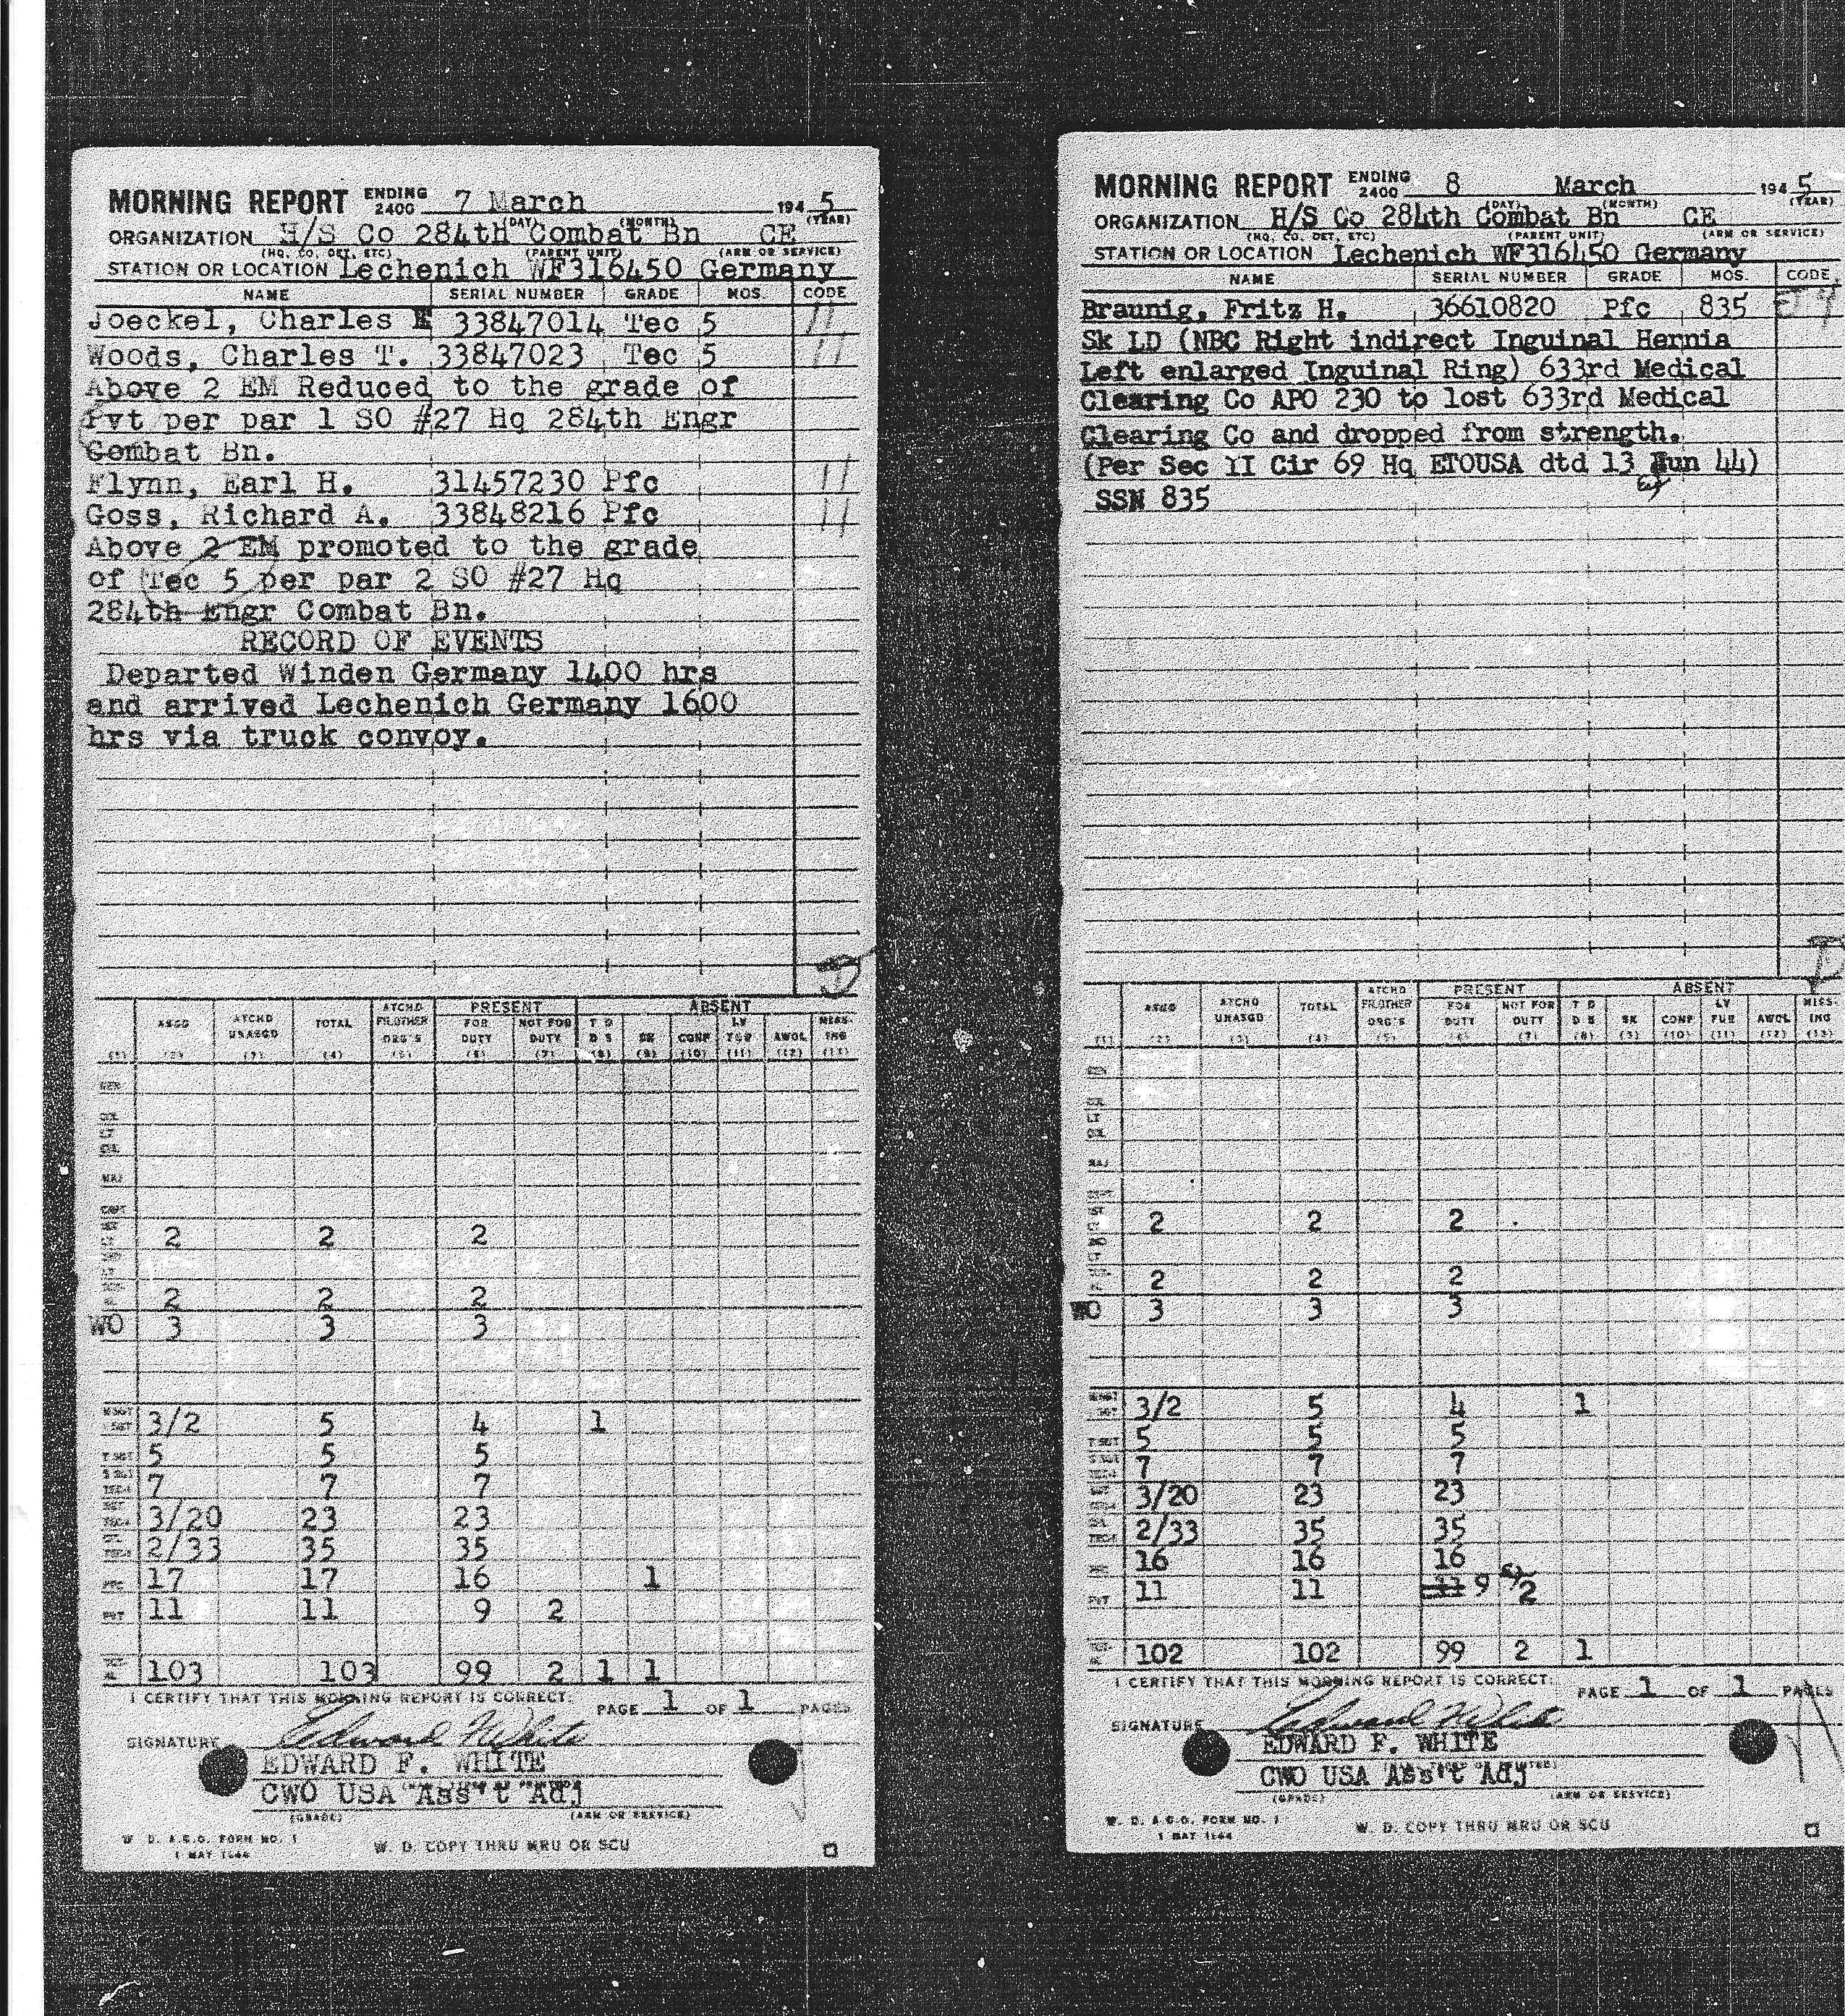 MORNING REPORT ENDING 2400 7 March 1945
(DAY) (MONTH) (YEAR)
ORGANIZATION H/S Co 284th Combat Bn CE
(HQ, CO, DET, ETC) (PARENT UNIT) (ARM OR SERVICE)
STATION OR LOCATION Lechenich WF316450 Germany
NAME SERIAL NUMBER GRADE MOS CODE
Joeckel, Charles 33847014 Tec 5 11
Woods, Charles T. 33847023 Tec 5 11
Above 2 EM Reduced to the grade of
Pvt per par 1 SO #27 Hq 284th Engr
Combat Bn.
Flynn, Earl H. 31457230 Pfc 11
Goss, Richard A. 33848216 Pfc 11
Above 2 EM promoted to the grade
of Tec 5 per par 2 SO #27 Hq
284th Engr Combat Bn.
RECORD OF EVENTS
Departed Winden Germany 1400 hrs
and arrived Lechenich Germany 1600
hrs via truck convoy.
D
PRESENT ABSENT
ASGD ATCHD UNASGD TOTAL ATCHD FR OTHER ORG'S FOR DUTY NOT FOR DUTY T D D S SK CONF LV FUR AWOL MISSING
(1) (2) (3) (4) (5) (6) (7) (8) (9) (10) (11) (12) (13)
2 2 2
2 2 2
WO 3 3 3
3/2 5 4 1
T SGT 5 5 5
7 7 7
3/20 23 23
2/33 35 35
PFC 17 17 16 1
PVT 11 11 9 2
103 103 99 2 1 1
I CERTIFY THAT THIS MORNING REPORT IS CORRECT: PAGE 1 OF 1 PAGES
SIGNATURE Edward F White
EDWARD F. WHITE
CWO USA Ass't Adj
(GRADE) (ARM OR SERVICE)
W. D. A.G.O. FORM NO. 1
1 MAY 1944
W. D. COPY THRU MRU OR SCU
MORNING REPORT ENDING 2400 8 March 1945
(DAY) (MONTH) (YEAR)
ORGANIZATION H/S Co 284th Combat Bn CE
(HQ, CO, DET, ETC) (PARENT UNIT) (ARM OR SERVICE)
STATION OR LOCATION Lechenich WF316450 Germany
NAME SERIAL NUMBER GRADE MOS. CODE
Braunig, Fritz H. 36610820 Pfc 835
Sk LD (NBC Right indirect Inguinal Hernia
Left enlarged Inguinal Ring) 633rd Medical
Clearing Co APO 230 to lost 633rd Medical
Clearing Co and dropped from strength.
(Per Sec II Cir 69 Hq ETOUSA dtd 13 Jun 44)
SSN 835
PRESENT ABSENT
ASGD ATCHD UNASGD TOTAL ATCHD FR OTHER ORG'S FOR DUTY NOT FOR DUTY T D D S SK CONF LV FUR AWOL MISSING
(1) (2) (3) (4) (5) (6) (7) (8) (9) (10) (11) (12) (13)
MAJ
2 2 2
2 2 2
WO 3 3 3
3/2 5 4 1
T SGT 5 5 5
7 7 7
3/20 23 23
2/33 35 35
16 16 16
PVT 11 11 11 9 2
102 102 99 2 1
I CERTIFY THAT THIS MORNING REPORT IS CORRECT: PAGE 1 OF 1 PAGES
SIGNATURE Edward F White
EDWARD F. WHITE
CWO USA Ass't Adj
(GRADE) (ARM OR SERVICE)
W. D. A.G.O. FORM NO. 1
1 MAY 1944
W. D. COPY THRU MRU OR SCU